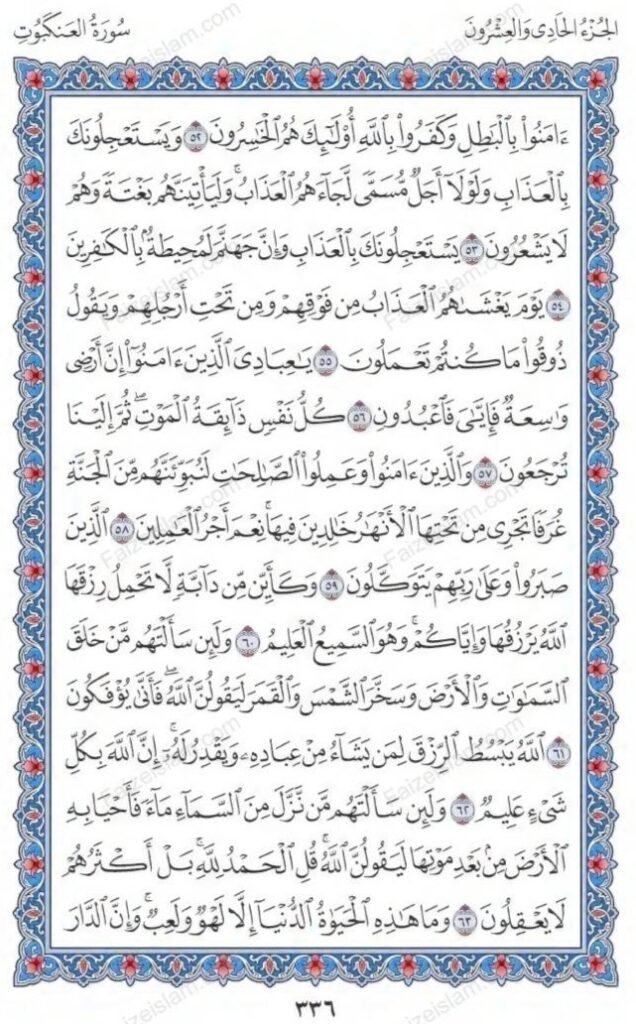 الجُزْءُ الحَادِى وَالعِشْرُونَ
سُورَةُ العَنكَبُوتِ
ءَامَنُوا۟ بِٱلْبَٰطِلِ وَكَفَرُوا۟ بِٱللَّهِ أُو۟لَٰٓئِكَ هُمُ ٱلْخَٰسِرُونَ ٥٢ وَيَسْتَعْجِلُونَكَ
بِٱلْعَذَابِ وَلَوْلَآ أَجَلٌ مُّسَمًّى لَّجَآءَهُمُ ٱلْعَذَابُ ۚ وَلَيَأْتِيَنَّهُم بَغْتَةً وَهُمْ
لَا يَشْعُرُونَ ٥٣ يَسْتَعْجِلُونَكَ بِٱلْعَذَابِ وَإِنَّ جَهَنَّمَ لَمُحِيطَةٌۢ بِٱلْكَٰفِرِينَ
٥٤ يَوْمَ يَغْشَىٰهُمُ ٱلْعَذَابُ مِن فَوْقِهِمْ وَمِن تَحْتِ أَرْجُلِهِمْ وَيَقُولُ
ذُوقُوا۟ مَا كُنتُمْ تَعْمَلُونَ ٥٥ يَٰعِبَادِىَ ٱلَّذِينَ ءَامَنُوٓا۟ إِنَّ أَرْضِى
وَٰسِعَةٌ فَإِيَّٰىَ فَٱعْبُدُونِ ٥٦ كُلُّ نَفْسٍ ذَآئِقَةُ ٱلْمَوْتِ ۖ ثُمَّ إِلَيْنَا
تُرْجَعُونَ ٥٧ وَٱلَّذِينَ ءَامَنُوا۟ وَعَمِلُوا۟ ٱلصَّٰلِحَٰتِ لَنُبَوِّئَنَّهُم مِّنَ ٱلْجَنَّةِ
غُرَفًا تَجْرِى مِن تَحْتِهَا ٱلْأَنْهَٰرُ خَٰلِدِينَ فِيهَا ۚ نِعْمَ أَجْرُ ٱلْعَٰمِلِينَ ٥٨ ٱلَّذِينَ
صَبَرُوا۟ وَعَلَىٰ رَبِّهِمْ يَتَوَكَّلُونَ ٥٩ وَكَأَيِّن مِّن دَآبَّةٍ لَّا تَحْمِلُ رِزْقَهَا
ٱللَّهُ يَرْزُقُهَا وَإِيَّاكُمْ ۚ وَهُوَ ٱلسَّمِيعُ ٱلْعَلِيمُ ٦٠ وَلَئِن سَأَلْتَهُم مَّنْ خَلَقَ
ٱلسَّمَٰوَٰتِ وَٱلْأَرْضَ وَسَخَّرَ ٱلشَّمْسَ وَٱلْقَمَرَ لَيَقُولُنَّ ٱللَّهُ ۖ فَأَنَّىٰ يُؤْفَكُونَ
٦١ ٱللَّهُ يَبْسُطُ ٱلرِّزْقَ لِمَن يَشَآءُ مِنْ عِبَادِهِۦ وَيَقْدِرُ لَهُۥٓ ۚ إِنَّ ٱللَّهَ بِكُلِّ
شَىْءٍ عَلِيمٌ ٦٢ وَلَئِن سَأَلْتَهُم مَّن نَّزَّلَ مِنَ ٱلسَّمَآءِ مَآءً فَأَحْيَا بِهِ
ٱلْأَرْضَ مِنۢ بَعْدِ مَوْتِهَا لَيَقُولُنَّ ٱللَّهُ ۚ قُلِ ٱلْحَمْدُ لِلَّهِ ۚ بَلْ أَكْثَرُهُمْ
لَا يَعْقِلُونَ ٦٣ وَمَا هَٰذِهِ ٱلْحَيَوٰةُ ٱلدُّنْيَآ إِلَّا لَهْوٌ وَلَعِبٌ ۚ وَإِنَّ ٱلدَّارَ
٣٣٦
Faizeislam.com